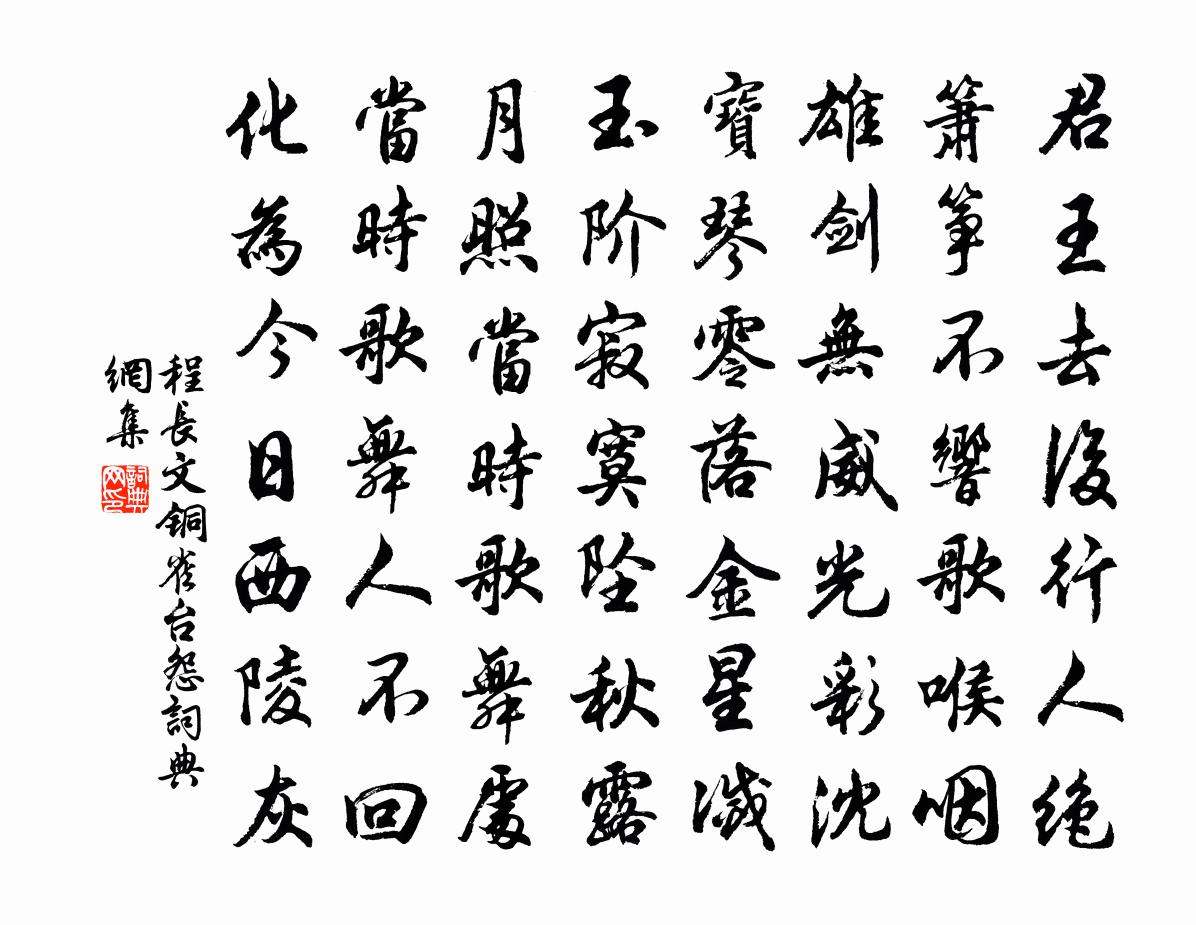 君王去後行人絶
簫筝不響歌喉咽
雄劍無威光彩沈
寶琴零落金星滅
玉阶寂寞坠秋露
月照當時歌舞處
當時歌舞人不回
化為今日西陵灰
程長文銅雀台怨詞典
網集
詞典
网印